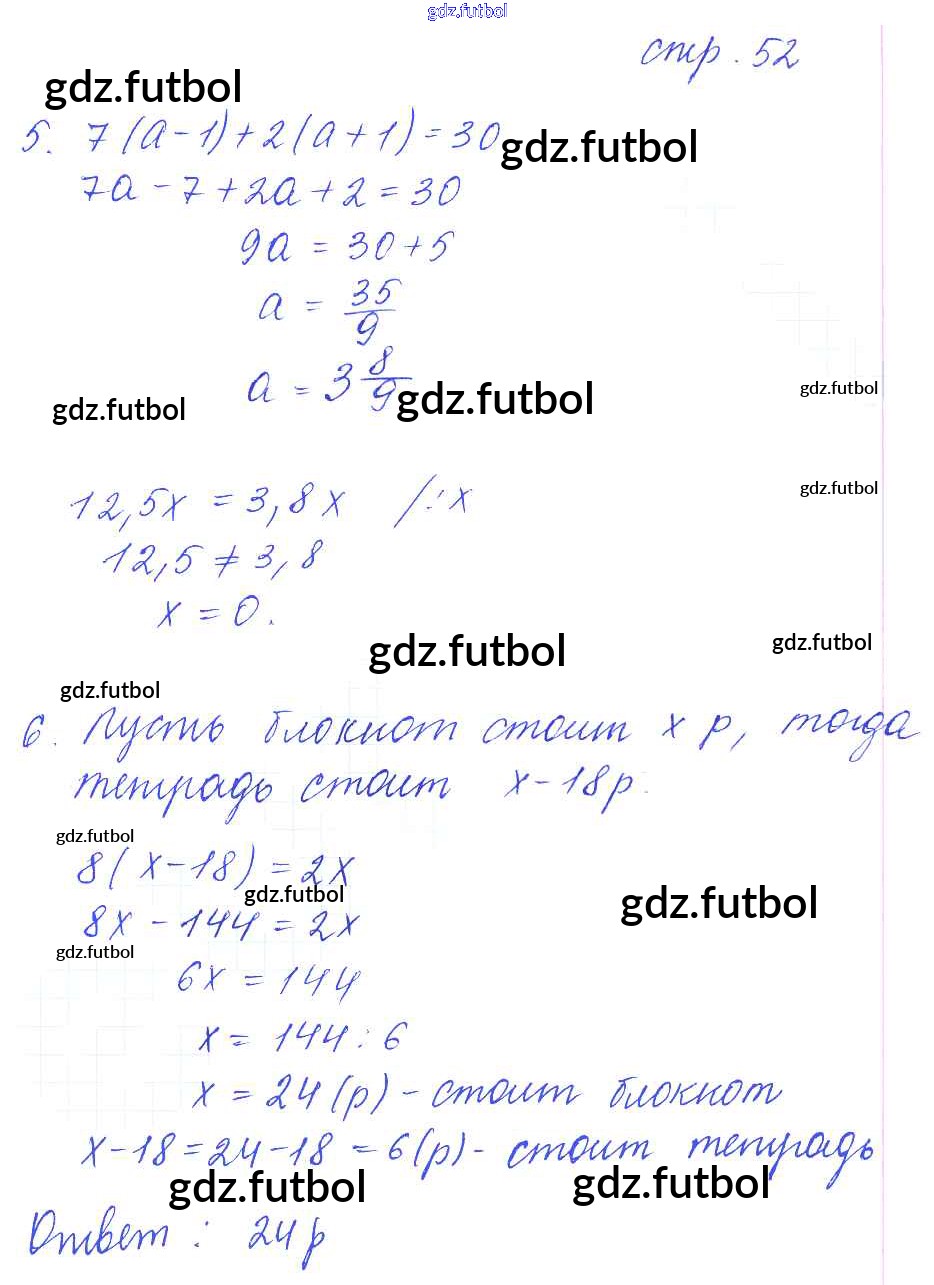 gdz.futbol
стр. 52
gdz.futbol
5. 7(a-1)+2(a+1)=30
gdz.futbol
7a-7+2a+2=30
9a = 30+5
a = 35/9
a = 3 8/9
gdz.futbol
gdz.futbol
gdz.futbol
12,5x = 3,8x /:x
gdz.futbol
12,5 ≠ 3,8
x = 0.
gdz.futbol
gdz.futbol
gdz.futbol
6. Пусть блокнот стоит x р, тогда
тетрадь стоит x-18р.
gdz.futbol
8(x-18)=2x
gdz.futbol
gdz.futbol
8x-144=2x
gdz.futbol
6x = 144
x = 144:6
x = 24(р)-стоит блокнот
x-18=24-18=6(р)-стоит тетрадь
gdz.futbol
gdz.futbol
Ответ: 24р